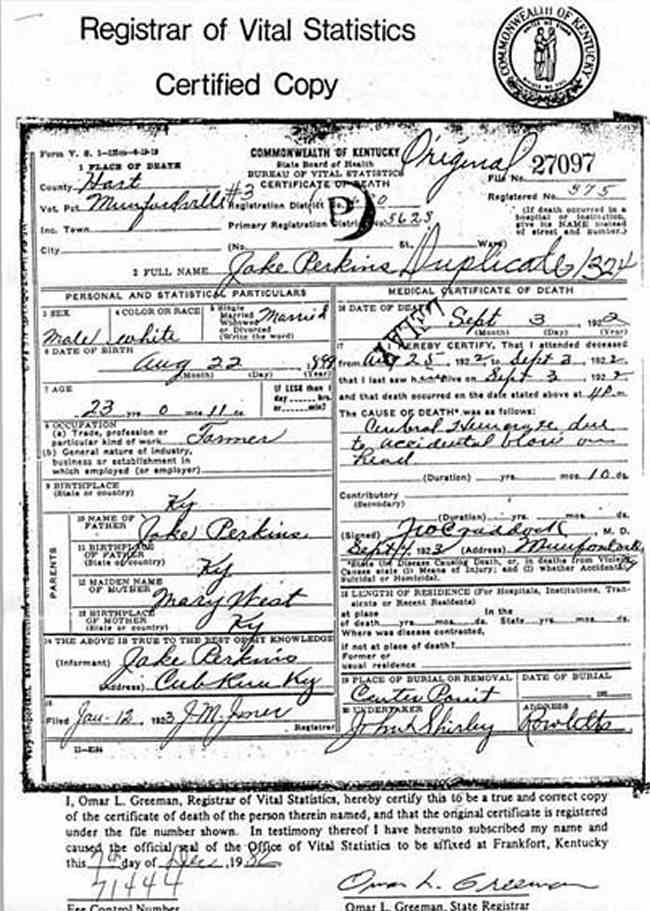 Registrar of Vital Statistics
Certified Copy
COMMONWEALTH OF KENTUCKY
Original
COMMONWEALTH OF KENTUCKY
State Board of Health
BUREAU OF VITAL STATISTICS
CERTIFICATE OF DEATH
1 PLACE OF DEATH
County Hart
Vot. Pct. Munfordville #3
Inc. Town
City
Registration District No.
Primary Registration District No. 5628
File No. 27097
Registered No. 375
(If death occurred in a
hospital or institution,
give its NAME instead
of street and number.)
(No. St., Ward)
2 FULL NAME Jake Perkins Duplicate 1324
PERSONAL AND STATISTICAL PARTICULARS
3 SEX Male
4 COLOR OR RACE white
5 Single
Married
Widowed
or Divorced
(Write the word) Married
6 DATE OF BIRTH
Aug 22
(Month) (Day) (Year)
7 AGE
23 yrs 0 mos 11 ds
IF LESS than 1
day hrs.
or min?
8 OCCUPATION
(a) Trade, profession or
particular kind of work Farmer
(b) General nature of industry,
business or establishment in
which employed (or employer)
9 BIRTHPLACE
(State or country) Ky
PARENTS
10 NAME OF
FATHER Jake Perkins
11 BIRTHPLACE
OF FATHER
(State or country) Ky
12 MAIDEN NAME
OF MOTHER Mary West
13 BIRTHPLACE
OF MOTHER
(State or country) Ky
14 THE ABOVE IS TRUE TO THE BEST OF MY KNOWLEDGE
(Informant) Jake Perkins
(Address) Cub Run Ky
15
Filed Jan-12, 1923 J.M.
Registrar
MEDICAL CERTIFICATE OF DEATH
16 DATE OF DEATH
Sept 3, 1922
(Month) (Day) (Year)
17 I HEREBY CERTIFY, That I attended deceased
from Aug 25, 1922 to Sept 3, 1922
that I last saw h alive on Sept 3, 1922
and that death occurred on the date stated above at 4P m
The CAUSE OF DEATH* was as follows:
Cerebral due
to accidental blow on
head
(Duration) yrs. mos. 10 ds.
Contributory
(Secondary)
(Duration) yrs. mos. ds.
(Signed) Craddock, M. D.
Sept 4, 1923 (Address)
*State the Disease Causing Death, or, in deaths from Violent
Causes state (1) Means of Injury; and (2) whether Accidental,
Suicidal or Homicidal.
18 LENGTH OF RESIDENCE (For Hospitals, Institutions, Tran-
sients or Recent Residents)
at place In the
of death yrs. mos. ds. State yrs. mos. ds.
Where was disease contracted,
if not at place of death?
Former or
usual residence
19 PLACE OF BURIAL OR REMOVAL
Center Point
DATE OF BURIAL
20 UNDERTAKER
John Shirley
ADDRESS
Rowletts
I, Omar L. Greeman, Registrar of Vital Statistics, hereby certify this to be a true and correct copy
of the certificate of death of the person therein named, and that the original certificate is registered
under the file number shown. In testimony thereof I have hereunto subscribed my name and
caused the official seal of the Office of Vital Statistics to be affixed at Frankfort, Kentucky
this day of , 19
71444
Fee Control Number
Omar L. Greeman
Omar L. Greeman, State Registrar